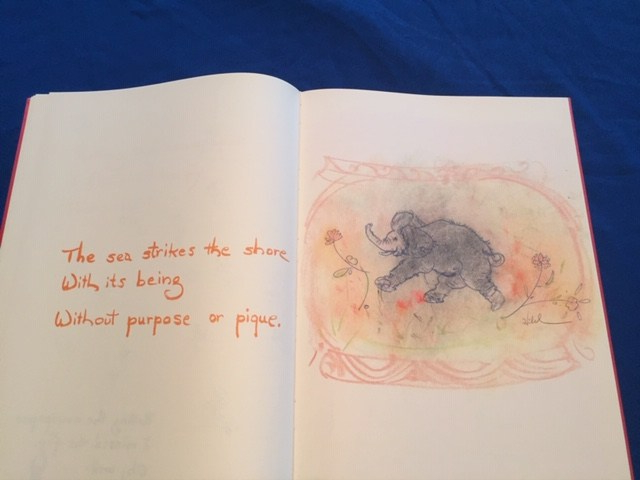 The sea strikes the shore
With its being
Without purpose or pique.